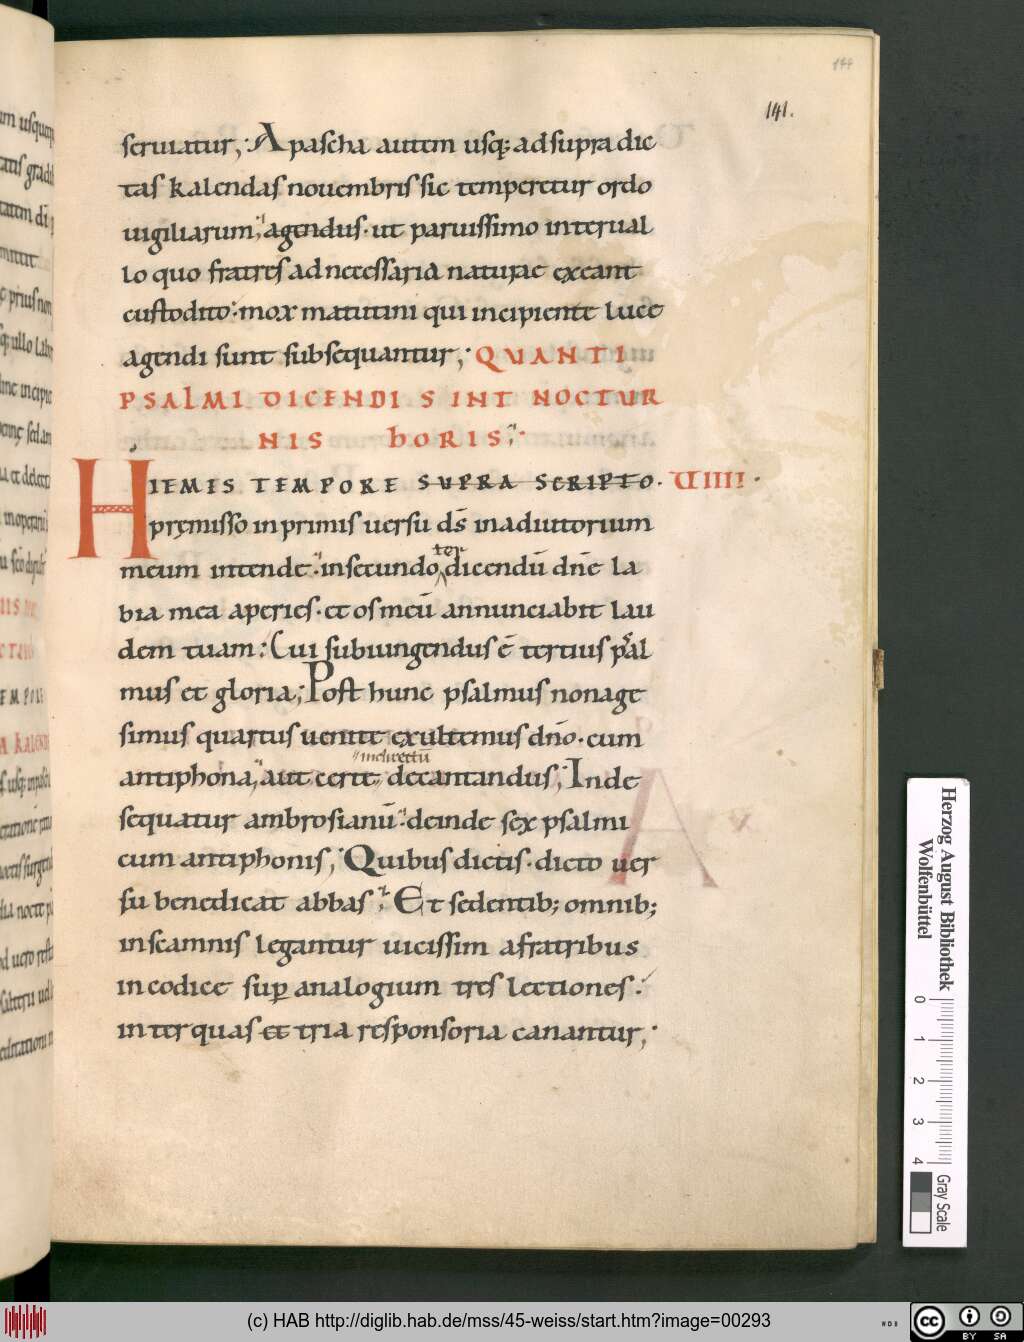 144
141.
seruiatur; A pascha autem usq; ad supra dic
tas kalendas nouembris sic temperetur ordo
uigiliarum; agendus. ut paruissimo interual
lo quo fratres ad necessaria naturae exeant
custodito. mox matutini qui incipiente luce
agendi sunt subsequantur; QUANTI
PSALMI DICENDI SINT NOCTUR
NIS HORIS;
HIEMIS TEMPORE SUPRA SCRIPTO. VIIII.
pręmisso inprimis uersu ds̄ inadiutorium
meum intende. insecundo ter dicendū dn̄e la
bia mea aperies. et os meū annunciabit lau
dem tuam: Cui subiungendus ē tertius psal
mus et gloria; Post hunc psalmus nonage
simus quartus uenite exultemus dn̄o. cum
antiphona, aut certe decantandus; Inde
sequatur ambrosianū. deinde sex psalmi
cum antiphonis; Quibus dictis. dicto uer
su benedicat abbas; Et sedentib; omnib;
in scamnis legantur uicissim a fratribus
in codice sup̱ analogium tres lectiones:
inter quas et tria responsoria canantur;
Herzog August Bibliothek
Wolfenbüttel
0 1 2 3 4
Gray Scale
(c) HAB http://diglib.hab.de/mss/45-weiss/start.htm?image=00293
cc BY SA